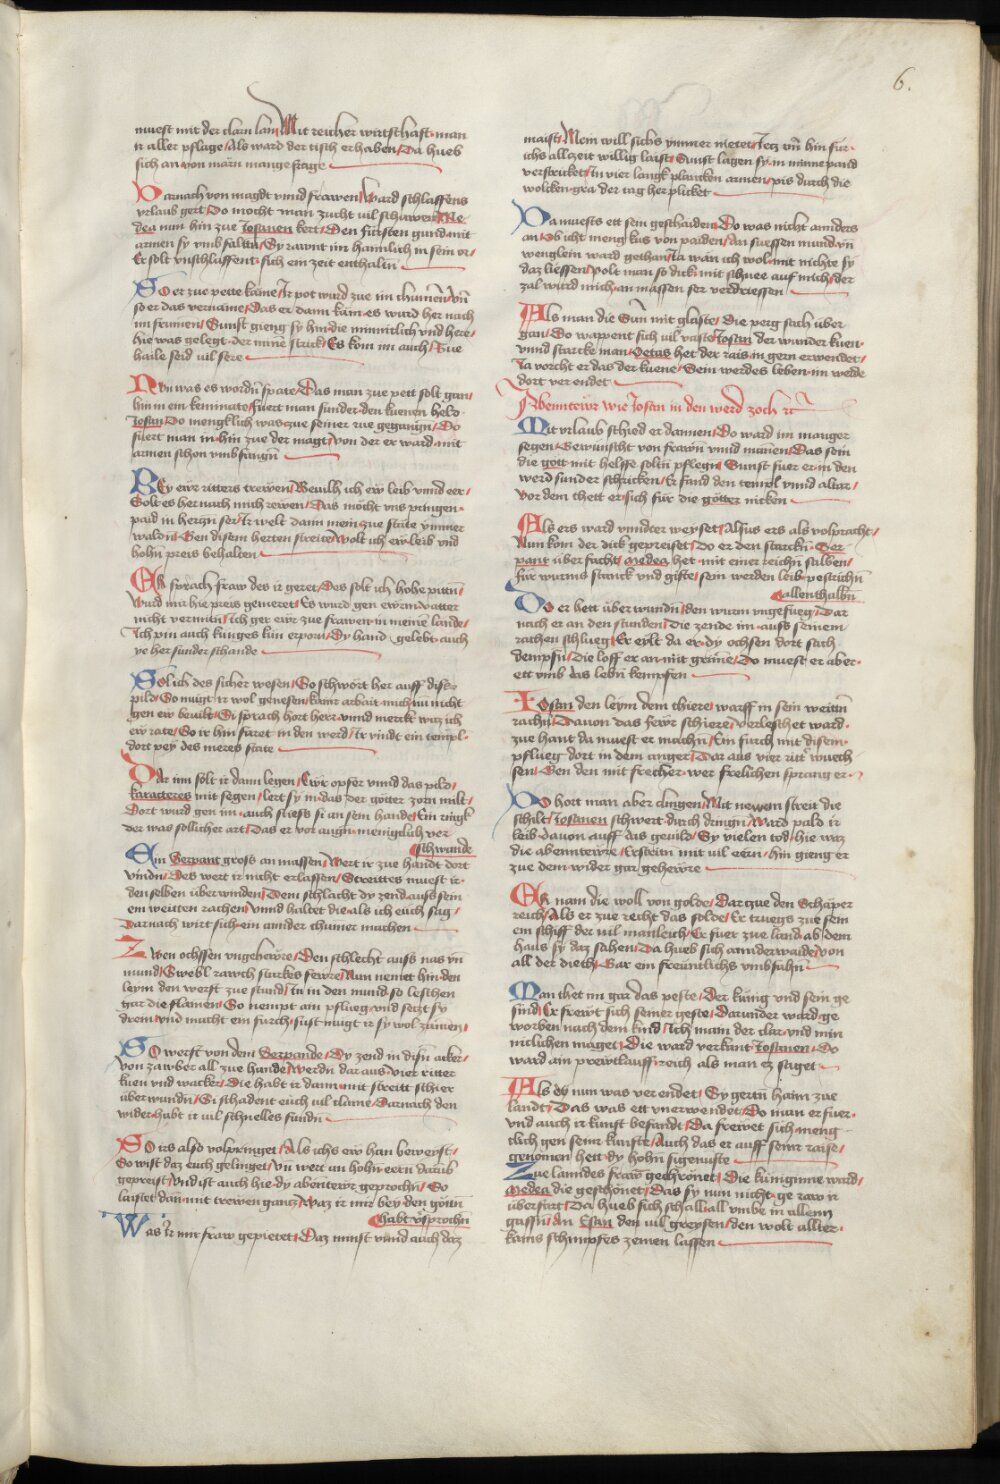 6.
muest mit der clarn lan Mit reicher wirtschaft / man
ir aller pflage / Als ward der tisch erhaben / Da hueb
sich an von märn mange frage
Darnach von magdt vnnd frawen / Ward schlaffens
vrlaub gert / Do mocht man zucht vil schawen / Me
dea nun hin zue Josanen kert / Den fürsten gundt mit
armen sy vmbfaltn / Sy rawnt im haimlich in sein or /
Er solt vnschlaffent sich ein zeit enthaltn
So er zue pette käme / Ir pot wurd zue im chumen / vn
so er das vername / Das er dann käm es wurd her nach
im frumen / Sunst gieng sy hin die minnitlich vnd here /
hie was gelegt der mine strick / Es kom im auch / Zue
haile seid vil sere
Nun was es wordn spate / Das man zue pett solt gan /
hin in ein keminate / Fuert man sunder den kuenen held
Josan / Do mengklich was zue seiner rue gegangn / Do
fuert man in hin zue der magt / von der er ward mit
armen schon vmbfangn
Bey ewr ritters trewen / Beuilh ich ew leib vnnd eer /
Solt es hernach mich rewen / Das mocht vns pringen
paid in hertzn ser / Ir welt dann mein zue stäte ymmer
waldn / Gen disem herten streite / Wolt ich ew leib vnd
hohn preis behalten
Er sprach fraw des ir geret / Des solt ich hohe pittn /
Wurd mir hie preis gemeret / Es wurd gen ewrm vatter
nicht vermitn / Ich ger ewr zue frawen in meine lande /
Ich pin auch kunges kün erporn / Dy hand gelebt auch
ye her sunder schande
Sol ich des sicher wesen / So schwört her auff diß
pild / So mügt ir wol genesen / kainr arbait mich nu nicht
gen ew beuilt / Si sprach hort herr vnnd merckt waz ich
ew rate / So ir hin füret in den werd / Ir vindt ein templ
dort pey des meres state
Dar inn solt ir dann legen / Ewr opfer vnnd das pild /
karacteres mit segen / lert sy in das der götter zorn milt /
Dort ward gen im auch stiess si an sein hande / Ein ringk
der was söllicher art / Das er vor augn menigclich ver
schwande
Ain Serpant gross an massen / Wert ir zue handt dort
vindn / Des wert ir nicht erlassen / Streittes muest ir
denselben überwinden / Dem schlacht dy zend auss sein
em weitten rachen / Vnnd haltet die als ich euch sag /
Darnach wirt sich ein annder chumer machen
Zwen ochssen vngehewre / Den schlecht auss nas vn
mund / Swebl rawch starkes fewre / Nun nemet hin den
leym den werft zue stund / In in den mund so leschen
gar die flamen / So nempt ain pflueg vnd setzt sy
drein vnd macht ein furch / sust mügt ir sy wol zämen /
So werft von dem Serpande / Dy zend in disn acker /
von zawber all zue hande / Werdn dar aus vier ritter
kuen vnd wacker / Die habt ir dann mit streitt schier
überwundn / Si schadent euch vil claine / Darnach den
wider habt ir vil schnelles fundn
So irs also volpringet / Als ichs ew han bewerst /
So wist daz euch gelinget / Vn wert an hohn eern darub
gepreist / Vnd ist auch hie dy abentewr geprochn / So
laistet dan mit trewen gantz / Waz ir mir bey den göttn
habt vsprochn
Was Ir mir fraw gepietet / Daz minst vnnd auch daz
maist / Mein will sichs ymmer nietet / Jetz vn hin für
ichs allezeit willig laist / Sunst lagen sy in minne pand
verstricket / In vier langk plancken armen / pis durch die
wolcken gra der tag her plicket
Da muests ett sein geschaiden / Do was nicht annders
an / Ob icht meng kus von paiden / An suessen mund vn
wenglein ward gethan / Ja wän ich wol mit nichte sy
daz liessen / Wolt man so dick mit schnee auf mich / der
zal wurd mich an massen ser verdriessen
Als man die Sun mit glaste / Die perg sach über
gan / Do wappent sich vil vaste / Josan der wunder kuen
vnnd starcke man / Oetas het der rais in gern erwendet /
Ja vorcht er das der kuene / Sein werdes leben im werde
dort verendet
Abenntewr wie Josan in den werd zoch rc
Mit vrlaub schied er dannen / Do ward im manger
segen / Gewunscht von frawn vnnd mannen / Das sein
die gott mit helffe soltn pflegn / Sunst fuer er in den
werd sunder schricken / Er fand den templ vnnd altar /
Vor dem thett er sich für die götter nicken
Als ers ward vnndterweyset / Alsus ers als volpracht /
Nun kom der dick gepreiset / Do er den starckn Ser
pant über facht / Medea het mit einer reichn salben /
für wurms stanck vnd gifte / sein werden leib pestrichn
allenthalbn
Do er hett überwundn / den wurm vngefueg / Dar
nach er an den stunden / Die zende im auss seinem
rachen schlueg / Er eylt da er dy ochsen dort sach
dempfn / Die loff er an mit grimme / Do muest er aber
ett vmb das lebn kempfen
Josan den leym dem thiere / warff in sein weittn
rachn / Dauon das fewr schiere / Verleschet ward
zue hant da muest er machn / Ein furch mit disem
pflueg dort in dem anger / Dar aus vier ritr wuech
sen / Gen den mit frecher wer frelichen sprang er
Do hort man aber clingen / Mit newem streit die
schilt / Josanen schwert durch dringn / Ward pald ir
leib dauon auff das geuild / Sy vielen tod / hie waz
die abenntewre / Erstritn mit vil eern / hin gieng er
zue dem wider gar geheire
Er nam die woll von golde / Dar zue den Schaper
reich / Als er zue recht das solde / Er truegs zue sein
em schiff der vil manleich / Er fuer zue land ab dem
haus sy daz sahen / Da hueb sich annderwaide / von
all der diech / Gar ein freuntlichs vmbfahn
Man thet im gar das peste / Der küng vnd sein ge
sind / Er frewt sich seiner geste / Darunder ward ge
worben nach dem kind / Ich main der clar vnd min
niclichen maget / Die ward verkant Josanen / Do
ward ain prewtlauff reich als man ez saget
Als dy nun was verendet / Sy gertn haim zue
landt / Das was ett vnerwendet / Do man erfuer
vnd auch ir kunft befandt / Da frewet sich meng
clich gen seinr kunfte / Auch das er auff seinr raise /
genomen hett dy hohn sigenufte
Zue lanndes fraw gechrönet / Die küniginne ward /
Medea die geschönet / Das sy nun nicht geraw ir
überfart / Da hueb sich schall / all vmbe in allenn
gassn / An Esan den vil greysen / den wolt aller
kains schimpfes zemen lassen